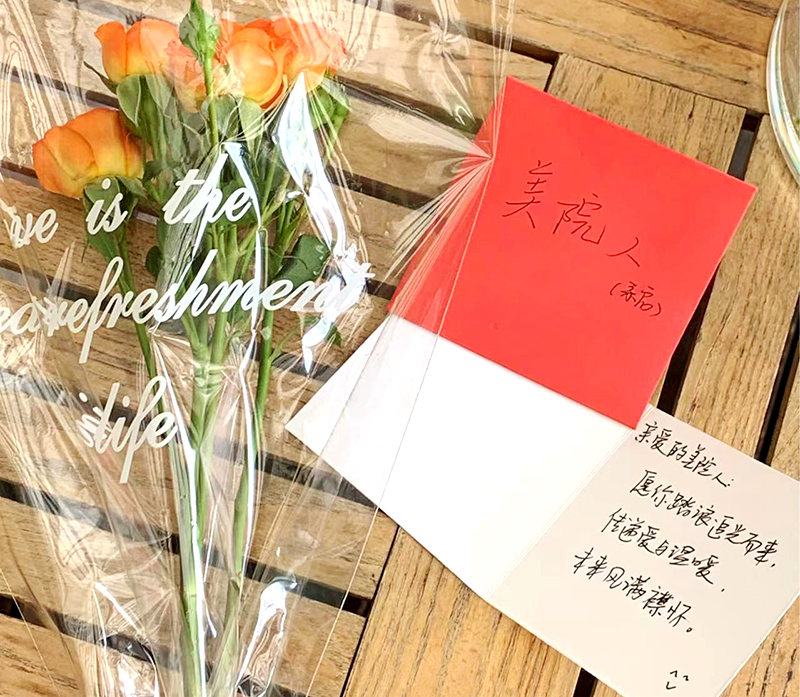 is the
refreshment
in life
美院人
(亲启)
亲爱的美院人:
愿你踏浪追光而来,
传递爱与温暖,
未来风满襟怀。